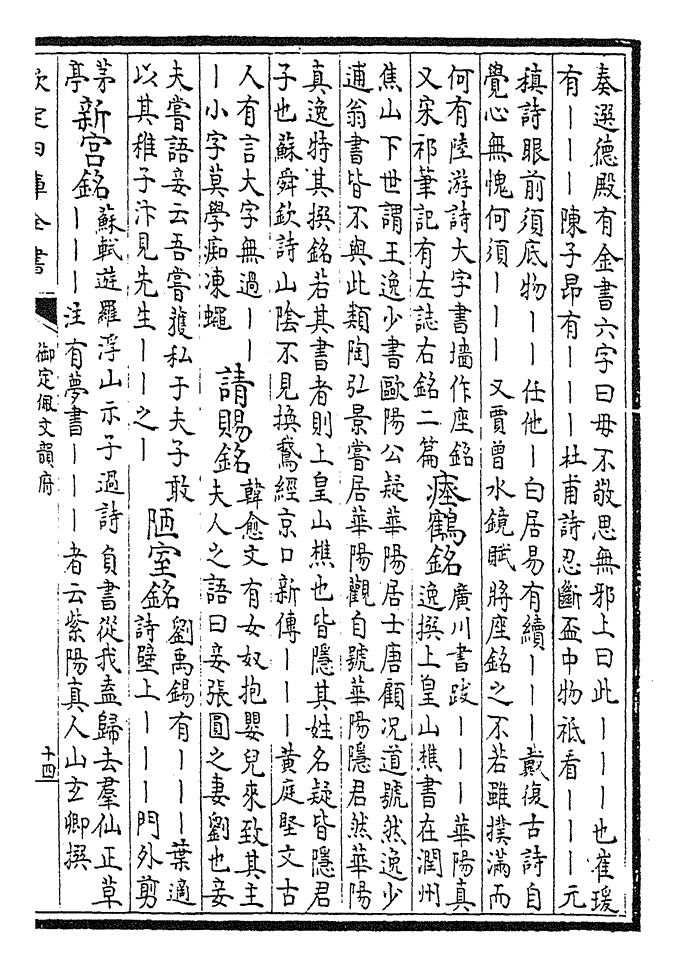 奏選德殿有金書六字曰毋不敬思無邪上曰此丨丨丨也崔瑗
有丨丨丨陳子昂有丨丨丨杜甫詩忍斷盃中物祗看丨丨丨元
稹詩眼前須底物丨丨任他丨白居易有續丨丨丨戴復古詩自
覺心無愧何須丨丨丨又賈曾水鏡賦將座銘之不若雖撲滿而
何有陸游詩大字書墻作座銘
又宋祁筆記有左誌右銘二篇
瘞鶴銘
廣川書跋丨丨丨華陽真
逸撰上皇山樵書在潤州
焦山下世謂王逸少書歐陽公疑華陽居士唐顧况道號然逸少
逋翁書皆不與此類陶弘景嘗居華陽觀自號華陽隱君然華陽
真逸特其撰銘若其書者則上皇山樵也皆隱其姓名疑皆隱君
子也蘇舜欽詩山陰不見換鵞經京口新傳丨丨丨黄庭堅文古
人有言大字無過丨丨
丨小字莫學痴凍蠅
請賜銘
韓愈文有女奴抱嬰兒來致其主
夫人之語曰妾張圓之妻劉也妾
夫嘗語妾云吾嘗獲私于夫子敢
以其稚子汴見先生丨丨之丨
陋室銘
劉禹錫有丨丨丨葉適
詩壁上丨丨丨門外剪
茅
亭
新宫銘
蘇軾遊羅浮山示子過詩負書從我盍歸去羣仙正草
丨丨丨注有夢書丨丨丨者云紫陽真人山玄卿撰
欽定四庫全書
御定佩文韻府
十四